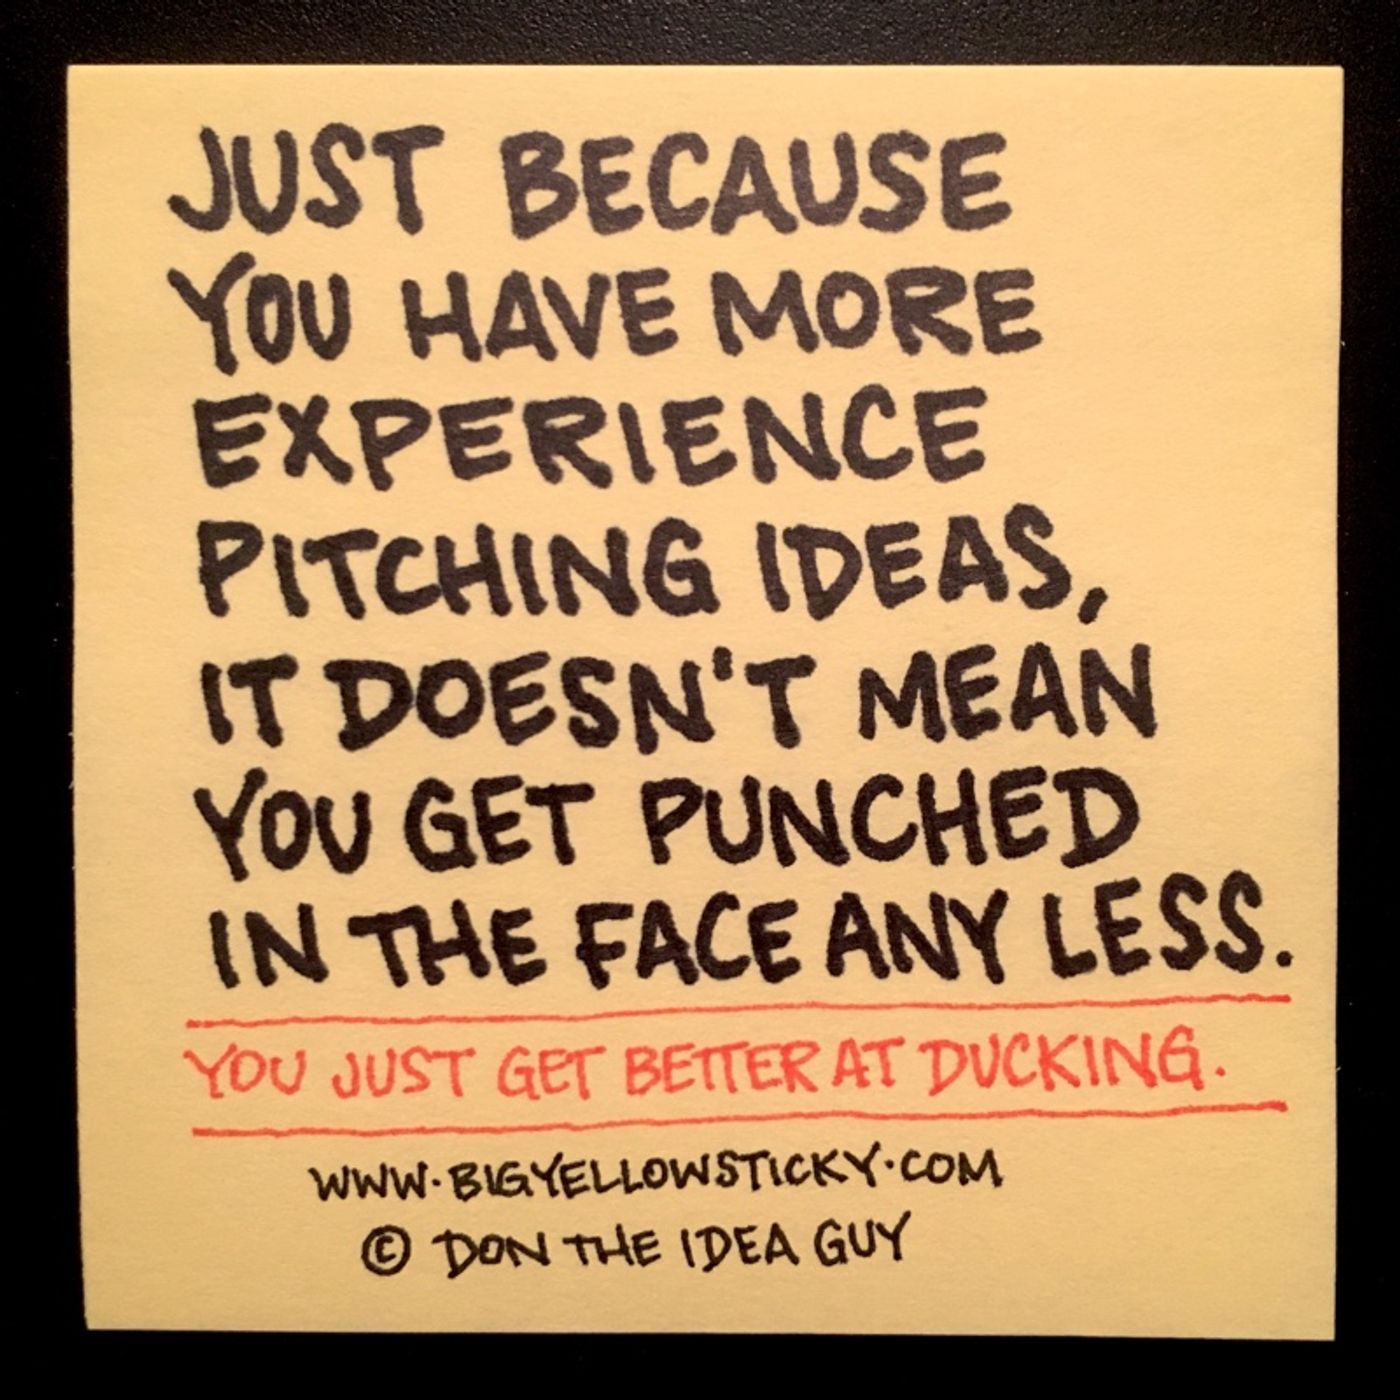 JUST BECAUSE
YOU HAVE MORE
EXPERIENCE
PITCHING IDEAS,
IT DOESN'T MEAN
YOU GET PUNCHED
IN THE FACE ANY LESS.
YOU JUST GET BETTER AT DUCKING.
WWW.BIGYELLOWSTICKY.COM
© DON THE IDEA GUY